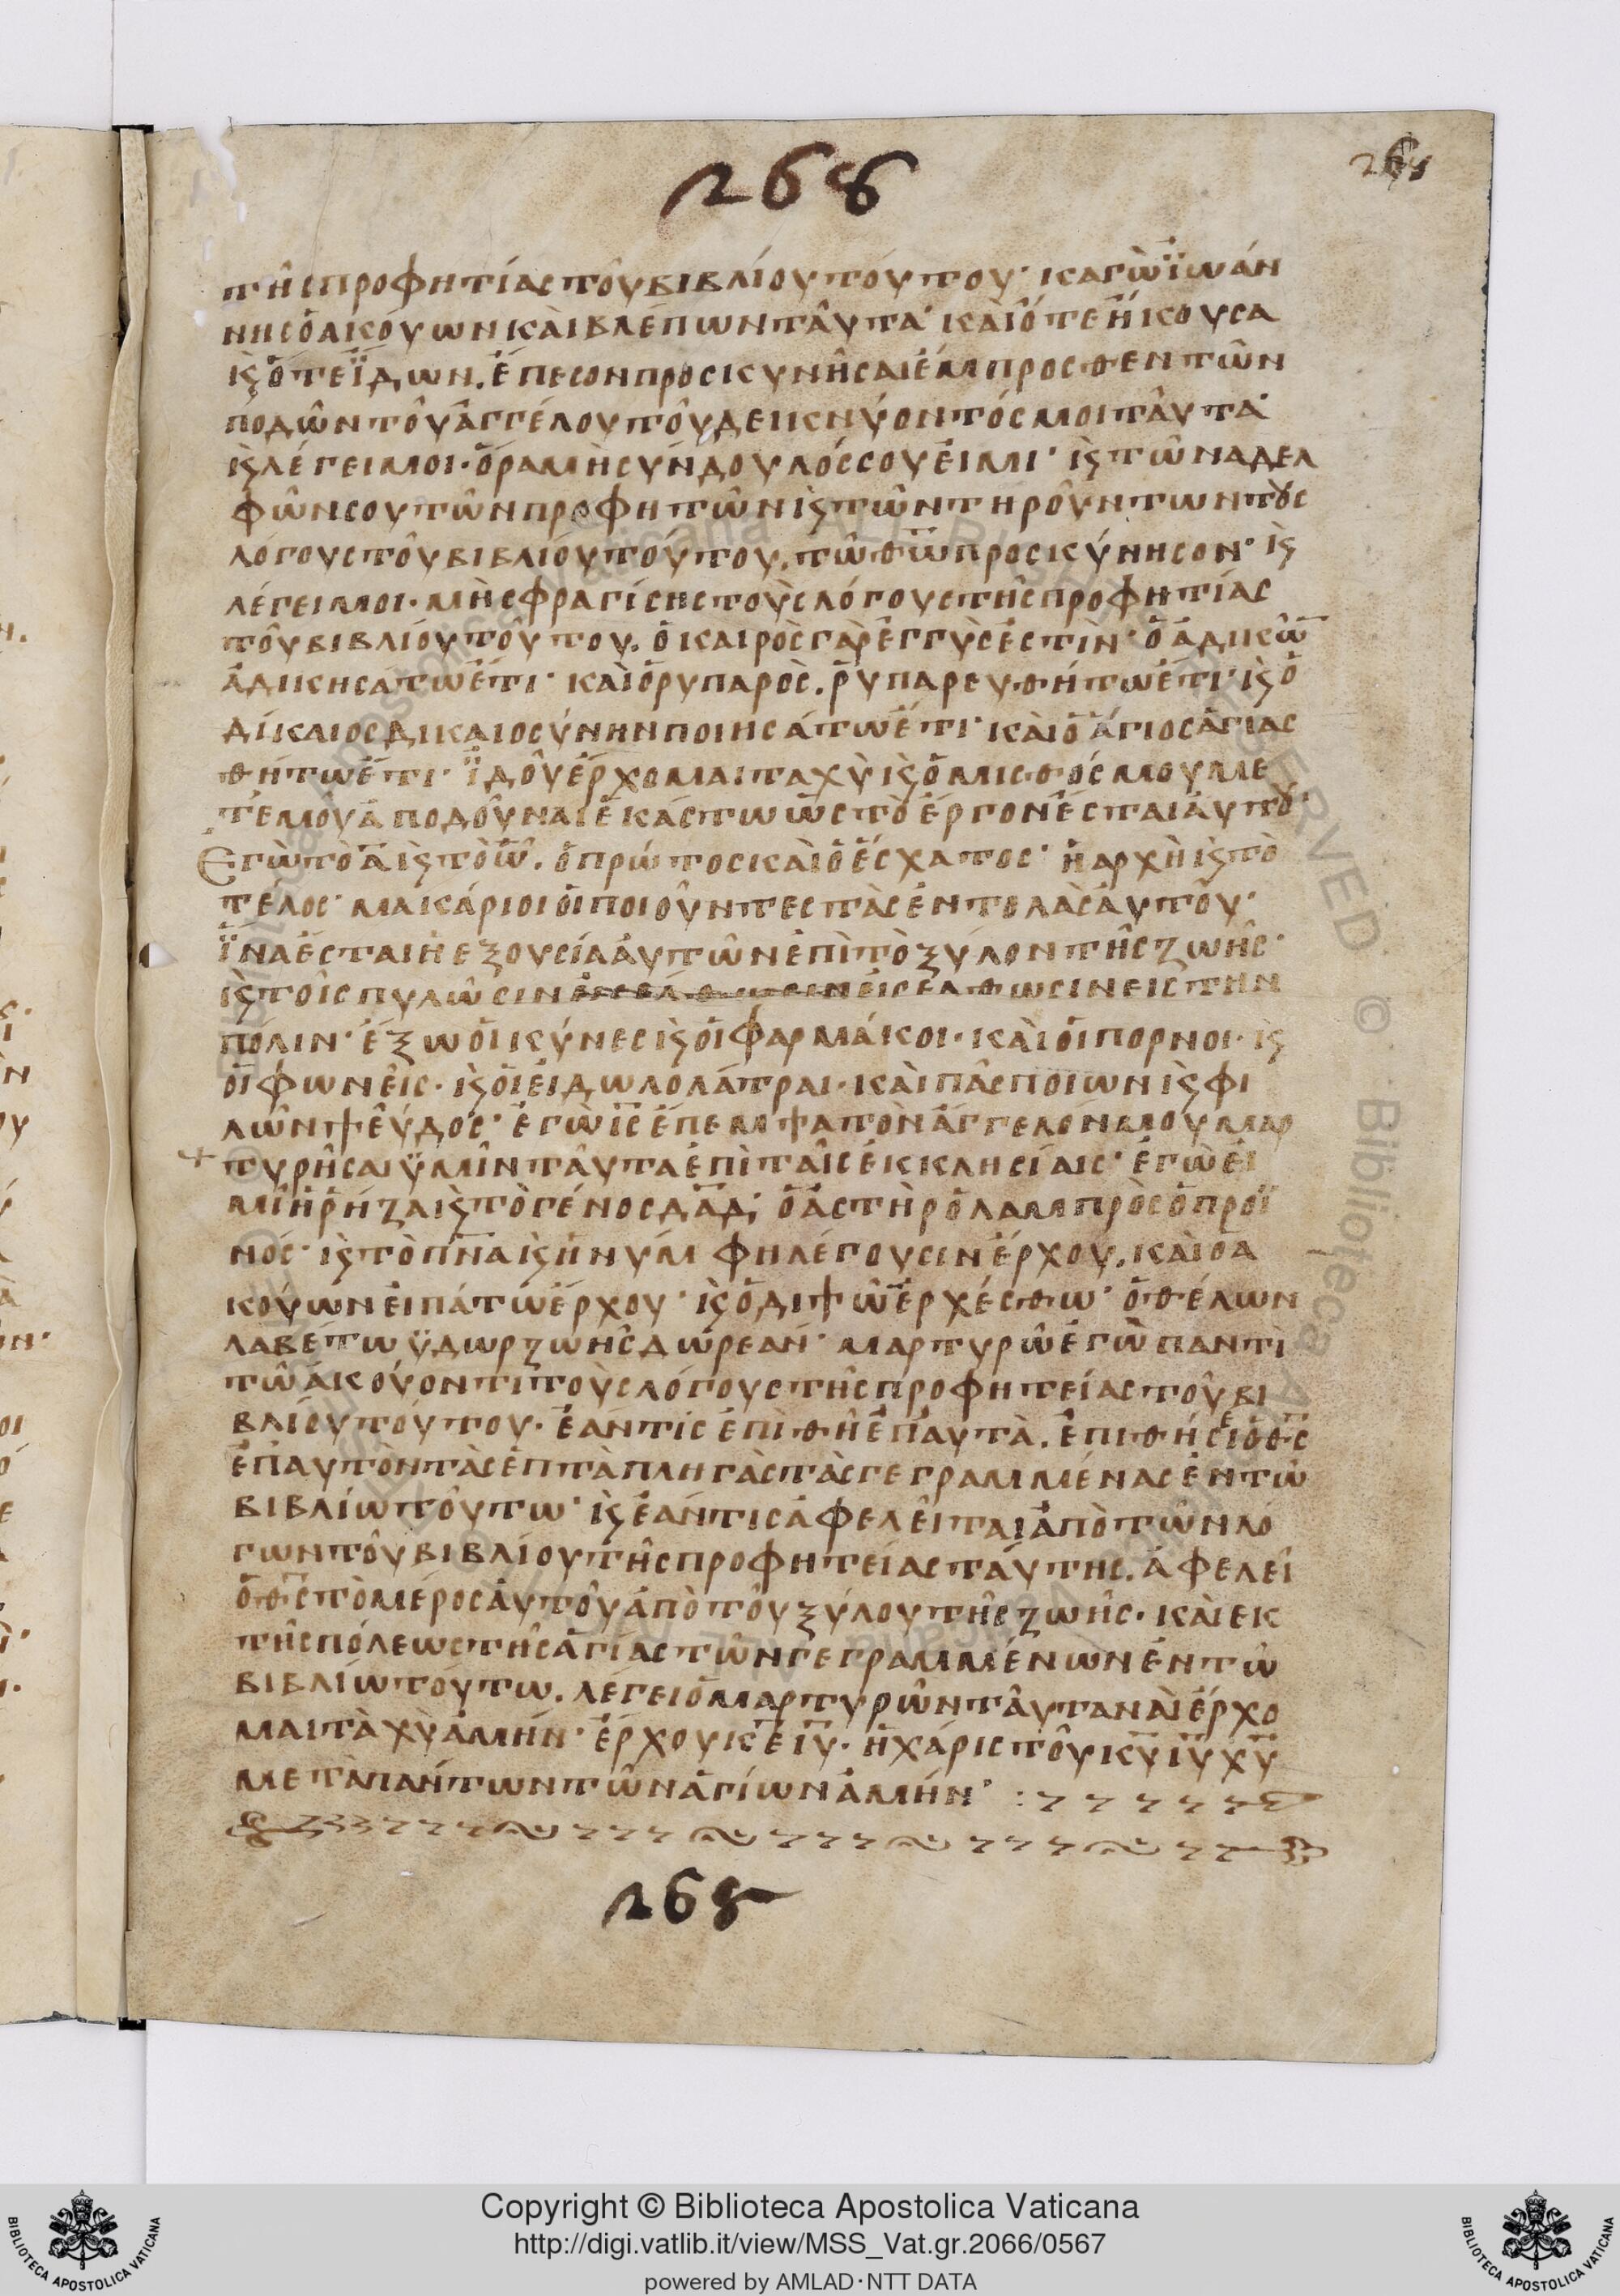 268
268
τῆς προφητίας τοῦ βιβλίου τούτου· καγὼ ϊωάν
νης ὁ ἀκούων καὶ βλέπων ταῦτα· καὶ ὅτε ἤκουσα
κ̀ς ὅτε ϊδων. ἔπεσον προσκυνῆσαι ἔμπροσθεν τῶν
ποδῶν τοῦ ἀγγέλου τοῦ δεικνύοντός μοι ταῦτα·
κ̀ς λέγει μοι. ὅρα μὴ σύνδουλός σου εἰμι· κ̀ς τῶν αδελ
φῶν σου τῶν προφητῶν κ̀ς τῶν τηροῦντων τοὺς
λόγους τοῦ βιβλίου τούτου. τῶ θ̅ω̅ προσκύνησον· κ̀ς
λέγει μοι. μὴ σφραγίσης τοὺς λόγους τῆς προφητίας
τοῦ βιβλίου τοῦτου. ὁ καιρὸς γὰρ ἐγγὺς ἐστὶν· ὁ ἀδικῶ̅
ἀδικησάτω ἔτι· καὶ ὁ ρυπαρὸς. ῥυπαρευθήτω ἔτι· κ̀ς ὁ
δίκαιος δικαιοσύνην ποιησάτω ἔτι· καὶ ὁ ἅγιος ἁγιασ
θήτω ἔτι· ϊδοῦ ἔρχομαι ταχὺ κ̀ς ὁ μισθός μου με
τ' ἐμοῦ ἀποδοῦναι ἑκάστω ὡς τὸ ἔργον ἔσται ἀυτοῦ·
Ἐγὼ τὸ α̅ κ̀ς τὸ ω̅. ὁ πρώτος καὶ ὁ ἔσχατος· ἡ αρχὴ κ̀ς τὸ
τέλος· μακάριοι ὁι ποιοῦντες τὰς ἐντολὰς ἀυτοῦ·
ϊνα ἔσται ἡ εξουσία ἀυτῶν ἐπὶ τὸ ξύλον τῆς ζωῆς·
κ̀ς τοῖς πυλῶσιν εἰσέλθωσιν εἰς την
πόλιν· ἔξω ὁι κύνες κ̀ς ὁι φαρμάκοι· καὶ ὁι πορνοι· κ̀ς
ὁι φωνεῖς· κ̀ς ὁι ἐιδωλολάτραι· καὶ πᾶς ποιων κ̀ς φι
λῶν ψεῦδος· ἐγὼ ι̅ς̅ ἔπεμψα τὸν ἄγγελόν μου μαρ
τυρῆσαι ϋμῖν ταῦτα ἐπὶ ταῖς ἐκκλησίαις· ἐγὼ ἐι
μὶ ἡ ῥήζα κ̀ς τὸ γένος δ̅α̅δ̅; ὁ ἀστὴρ ὁ λαμπρὸς ὁ προϊ
νός· κ̀ς τὸ π̅ν̅α̅ κ̀ς ἡ νύμφη λέγουσιν ἔρχου. καὶ ο α
κούων ἐιπάτω ἔρχου· κ̀ς ὁ διψῶ̅ ἐρχέσθω· ὁ θέλων
λαβέτω ϋδωρ ζωῆς δωρεαν· μαρτυρῶ ἐγὼ παντὶ
τῶ ἀκούοντι τοὺς λόγους τῆς προφητείας τοῦ βι
βλίου τούτου· ἐάν τίς ἐπιθῆ ἐπ' αυτὰ. ἐπιθήσει ὁ θ̅ς̅
ἐπ' αυτὸν τὰς ἑπτὰ πληγὰς τὰς γεγραμμένας ἐν τῶ
βιβλίω τοῦτω· κ̀ς ἐάν τις ἀφελεῖται ἀπὸ τῶν λό
γων τοῦ βιβλίου τῆς προφητείας ταύτης. ἀφελεῖ
ὁ θ̅ς̅ τὸ μέρος ἀυτοῦ ἀπὸ τοῦ ξύλου τῆς ζωῆς. καὶ εκ
τῆς πόλεως τῆς ἁγίας τῶν γεγραμμένων ἐν τῶ
βιβλίω τούτω. λέγει ὁ μαρτυρῶν ταῦτα ναὶ ἔρχο
μαι τὰχὺ ἀμήν· ἔρχου κ̅ε̅ ι̅υ̅. ἡ χάρις τοῦ κ̅υ̅ ι̅υ̅ χ̅υ̅
μετὰ πάντων τῶν ἁγίων ἀμήν· :
268
Copyright © Biblioteca Apostolica Vaticana
http://digi.vatlib.it/view/MSS_Vat.gr.2066/0567
powered by AMLAD·NTT DATA
BIBLIOTECA APOSTOLICA VATICANA
BIBLIOTECA APOSTOLICA VATICANA